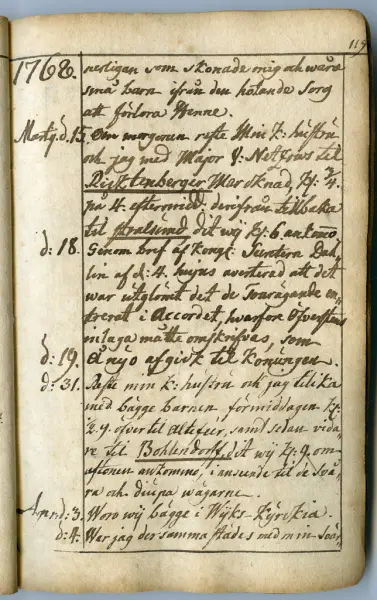 119
1768. nerligan som skonade mig och wåra
små barn ifrån den hotande Sorg
att förlora Henne.
Marty d. 15. Om morgonen reste Min K: hustru
och jag med Major V: Netzows till
Richtenberger Marcknad, Kl: 2/4.
på 4. eftermidd: derifrån tillbaka
til Stralsund dit wij Kl: 6 ankomo
d: 18. Genom bref af Kongl: Dah-
lin af d: 4. hujus averterad att det
war utglömt det de Swarägande en-
trerat i Accordet, hwarföre Öfverstens
inlaga måtte omskrifvas, som
d: 19. Å nyo afgick till Konungen.
d: 31. Reste min K: hustru och jag tillika
med bägge barnen förmiddagen Kl:
1/2 9. öfver til Altefähr, samt sedan vida-
re til Bohlendorf, dit wij Kl: 9. om
aftonen ankommo, i anseende til de swå-
ra och diupa wägarne.
d: 3. Woro wij bägge i Wijks Kyrckia.
d: 4. War jag der sammastädes med min Swär